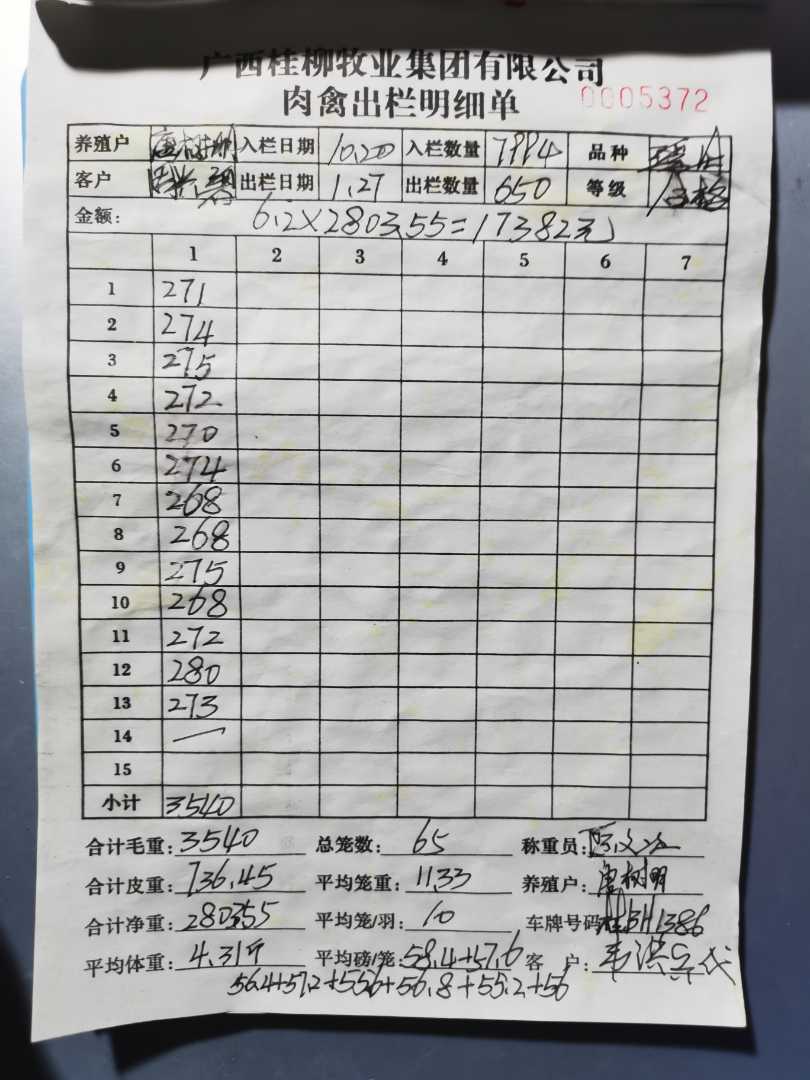 广西桂柳牧业集团有限公司
肉禽出栏明细单 0005372
养殖户 唐树明 入栏日期 10.20 入栏数量 7994 品种
客户 出栏日期 1.27 出栏数量 650 等级 合格
金额: 6.2×2803.55=17382元
1 2 3 4 5 6 7
1 271
2 274
3 275
4 272
5 270
6 274
7 268
8 268
9 275
10 268
11 272
12 280
13 273
14 —
15
小计 3540
合计毛重: 3540 总笼数: 65 称重员:
合计皮重: 736.45 平均笼重: 11.33 养殖户: 唐树明
合计净重: 2803.55 平均笼/羽: 10 车牌号码 桂BH1386
平均体重: 4.31斤 平均磅/笼: 58.4+57.6 客 户:
56.4+57.2+55.6+56.8+55.2+56